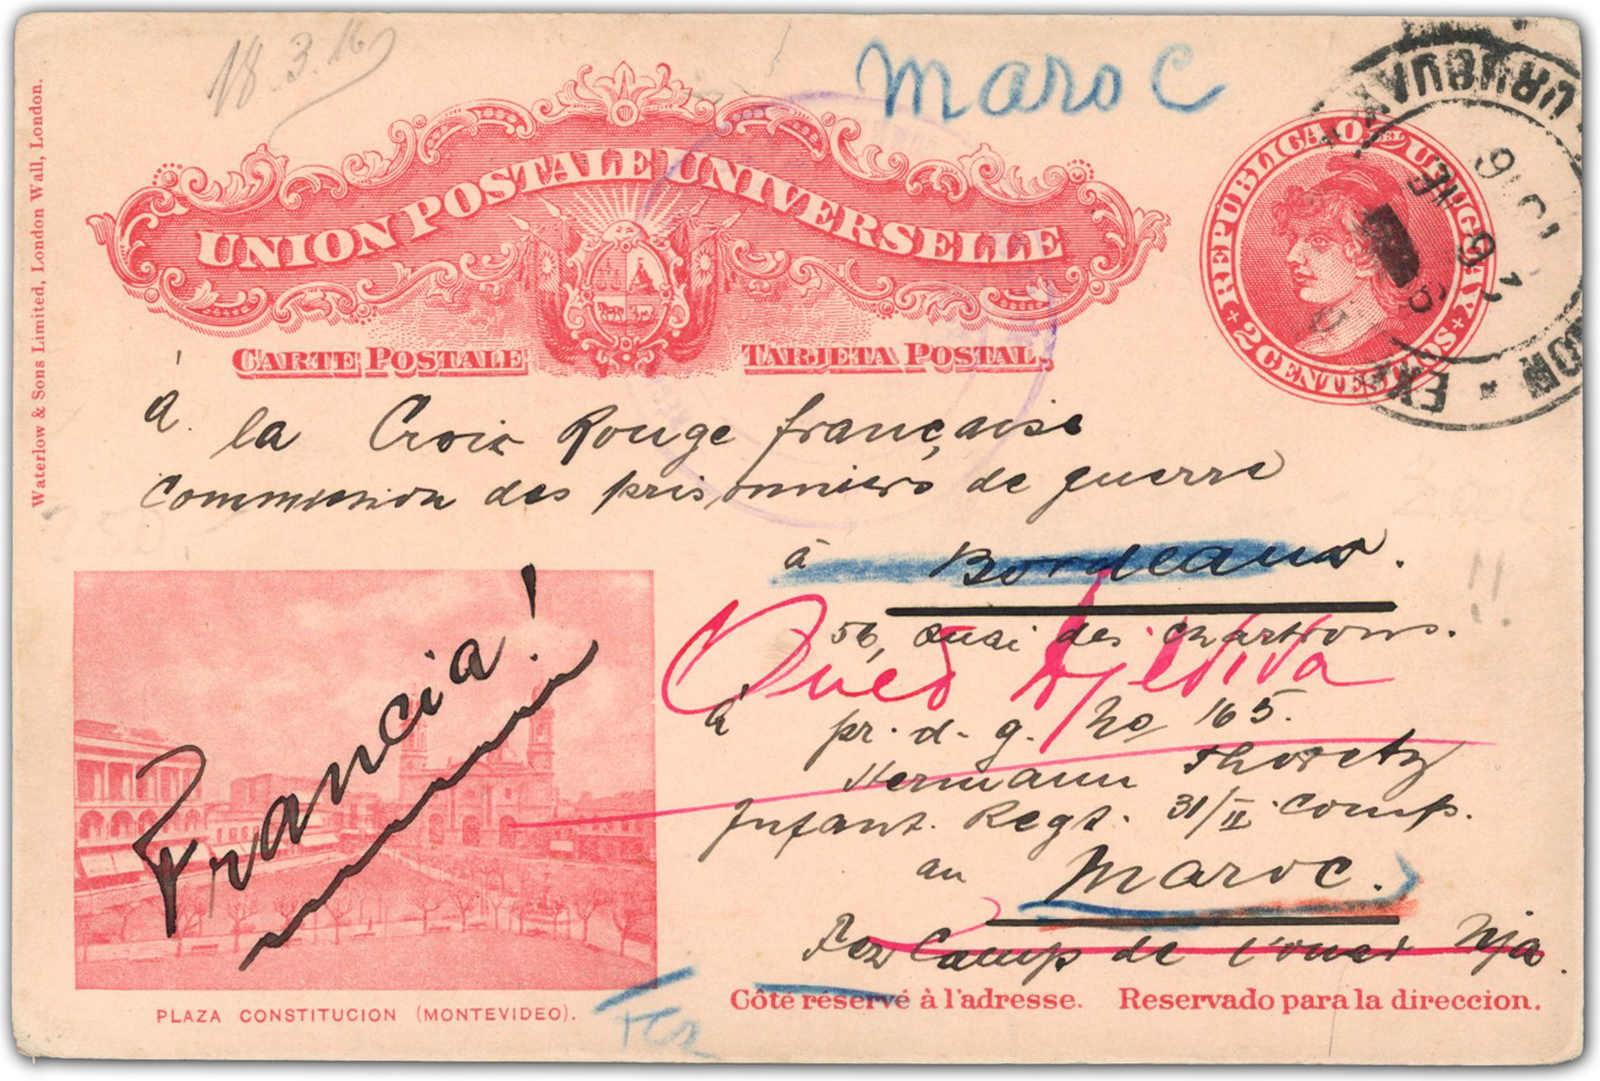 18.3.16
Maroc
UNION POSTALE UNIVERSELLE
CARTE POSTALE TARJETA POSTAL.
REPUBLICA O. DEL URUGUAY
2 CENTÉSIMOS
URUGUAY
Waterlow & Sons Limited, London Wall, London.
à la Croix Rouge française
Commission des prisonniers de guerre
à Bordeaux.
56, Quai des Chartrons.
Oued
à pr. d. g. No 165.
Hermann
Infant. Regt. 31/II Comp.
au Maroc.
Fez Camp de l'oued Nja
Francia!
Fez
Côté réservé à l'adresse. Reservado para la direccion.
PLAZA CONSTITUCION (MONTEVIDEO).